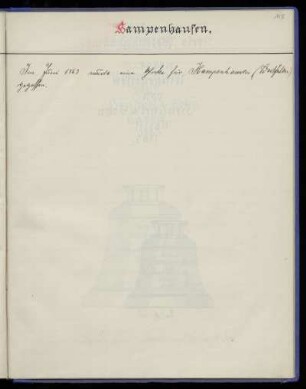 Kampenhausen.
Im Juni 1767 wurde eine Glocke für Kampenhausen (Westfalen)
gegossen.